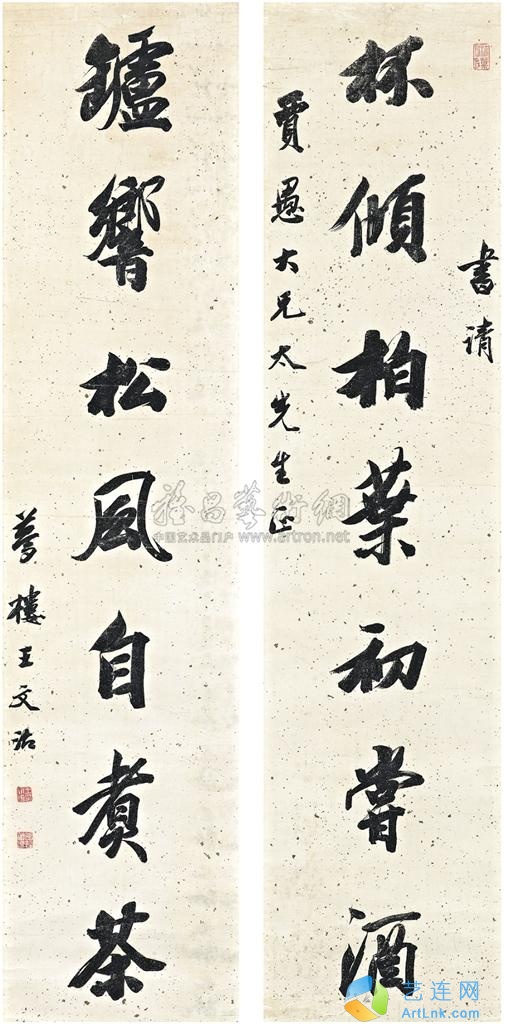 書請
杯傾柏葉初嘗酒
賈愚大兄太先生正
鑪響松風自煮茶
夢樓王文治
雅昌藝術網
中国艺术品门户 www.artron.net
艺连网
ArtLnk.com